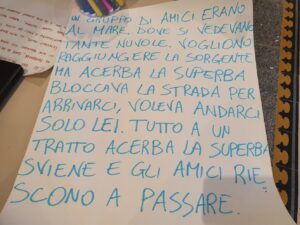 UN GRUPPO DI AMICI ERANO
AL MARE, DOVE SI VEDEVANO
TANTE NUVOLE. VOGLIONO
RAGGIUNGERE LA SORGENTE
MA ACERBA LA SUPERBA
BLOCCAVA LA STRADA PER
ARRIVARCI, VOLEVA ANDARCI
SOLO LEI. TUTTO A UN
TRATTO ACERBA LA SUPERBA
SVIENE E GLI AMICI RIE=
SCONO A PASSARE.